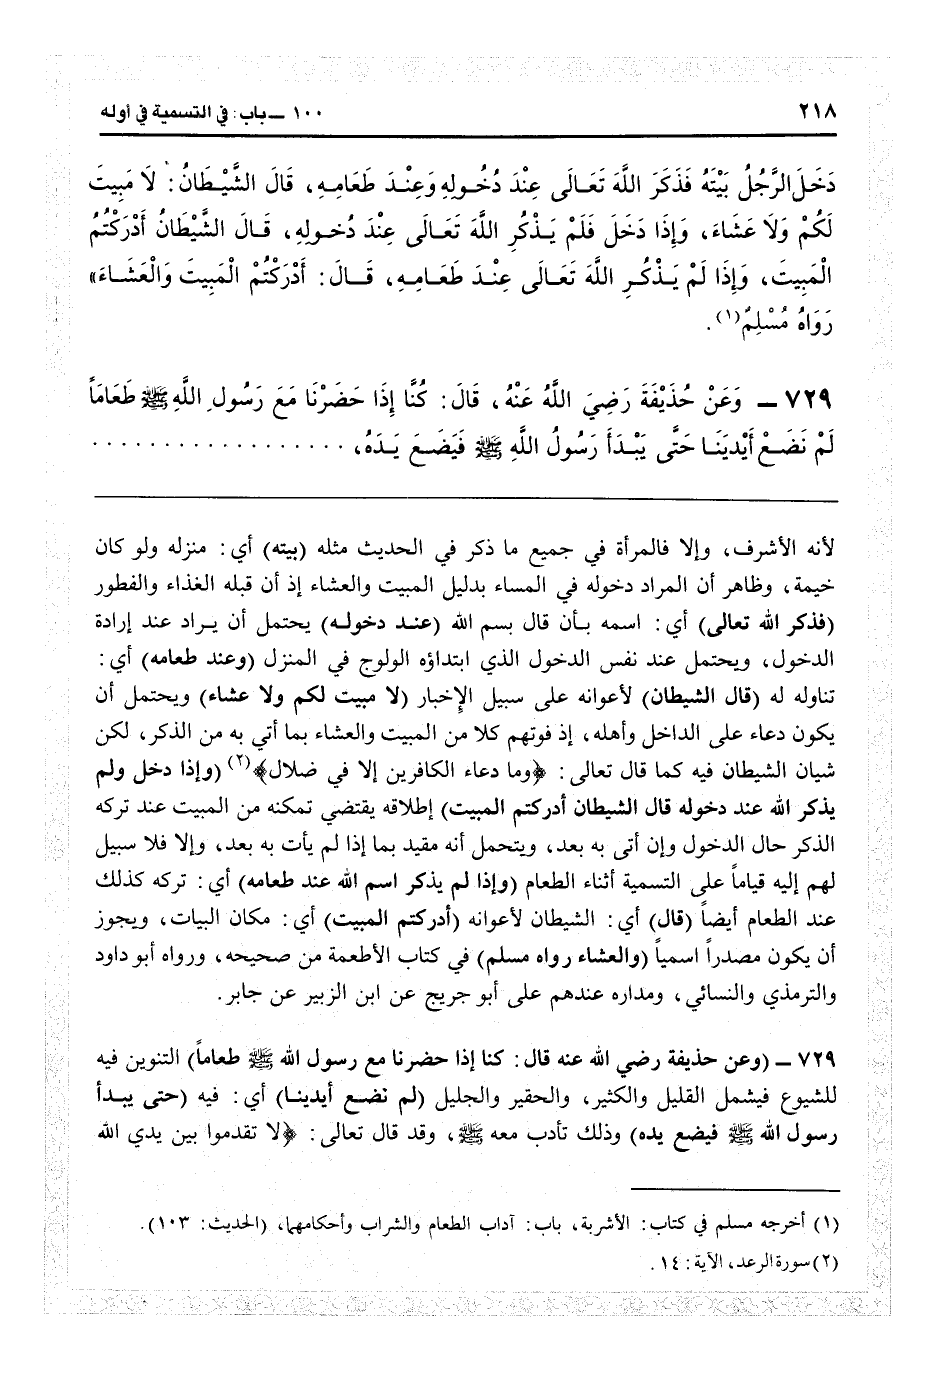 ٢١٨
١٠٠ ــ باب: في التسمية في أوله
دَخَلَ الرَّجُلُ بَيْتَهُ فَذَكَرَ اللَّهَ تَعَالَى عِنْدَ دُخُولِهِ وَعِنْدَ طَعَامِهِ، قَالَ الشَّيْطَانُ: لَا مَبِيتَ
لَكُمْ وَلَا عَشَاءَ، وَإِذَا دَخَلَ فَلَمْ يَذْكُرِ اللَّهَ تَعَالَى عِنْدَ دُخُولِهِ، قَالَ الشَّيْطَانُ أَدْرَكْتُمُ
الْمَبِيتَ، وَإِذَا لَمْ يَذْكُرِ اللَّهَ تَعَالَى عِنْدَ طَعَامِهِ، قَالَ: أَدْرَكْتُمْ الْمَبِيتَ وَالْعَشَاءَ»
رَوَاهُ مُسْلِمٌ(١).
٧٢٩ ــ وَعَنْ حُذَيْفَةَ رَضِيَ اللَّهُ عَنْهُ، قَالَ: كُنَّا إِذَا حَضَرْنَا مَعَ رَسُولِ اللَّهِ ﷺ طَعَاماً
لَمْ نَضَعْ أَيْدِيَنَا حَتَّى يَبْدَأَ رَسُولُ اللَّهِ ﷺ فَيَضَعَ يَدَهُ، . . . . . . . . . . . . . . . . . .
لأنه الأشرف، وإلا فالمرأة في جميع ما ذكر في الحديث مثله (بيته) أي: منزله ولو كان
خيمة، وظاهر أن المراد دخوله في المساء بدليل المبيت والعشاء إذ أن قبله الغذاء والفطور
(فذكر الله تعالى) أي: اسمه بأن قال بسم الله (عند دخوله) يحتمل أن يراد عند إرادة
الدخول، ويحتمل عند نفس الدخول الذي ابتداؤه الولوج في المنزل (وعند طعامه) أي:
تناوله له (قال الشيطان) لأعوانه على سبيل الإخبار (لا مبيت لكم ولا عشاء) ويحتمل أن
يكون دعاء على الداخل وأهله، إذ فوتهم كلا من المبيت والعشاء بما أتي به من الذكر، لكن
شيان الشيطان فيه كما قال تعالى: ﴿وما دعاء الكافرين إلا في ضلال﴾(٢) (وإذا دخل ولم
يذكر الله عند دخوله قال الشيطان أدركتم المبيت) إطلاقه يقتضي تمكنه من المبيت عند تركه
الذكر حال الدخول وإن أتى به بعد، ويتحمل أنه مقيد بما إذا لم يأت به بعد، وإلا فلا سبيل
لهم إليه قياماً على التسمية أثناء الطعام (وإذا لم يذكر اسم الله عند طعامه) أي: تركه كذلك
عند الطعام أيضاً (قال) أي: الشيطان لأعوانه (أدركتم المبيت) أي: مكان البيات، ويجوز
أن يكون مصدراً اسمياً (والعشاء رواه مسلم) في كتاب الأطعمة من صحيحه، ورواه أبو داود
والترمذي والنسائي، ومداره عندهم على أبو جريج عن ابن الزبير عن جابر.
٧٢٩ ــ (وعن حذيفة رضي الله عنه قال: كنا إذا حضرنا مع رسول الله ﷺ طعاماً) التنوين فيه
للشيوع فيشمل القليل والكثير، والحقير والجليل (لم نضع أيدينا) أي: فيه (حتى يبدأ
رسول الله ﷺ فيضع يده) وذلك تأدب معه ﷺ، وقد قال تعالى: ﴿لا تقدموا بين يدي الله
(١) أخرجه مسلم في كتاب: الأشربة، باب: آداب الطعام والشراب وأحكامهما، (الحديث: ١٠٣).
(٢) سورة الرعد، الآية: ١٤.